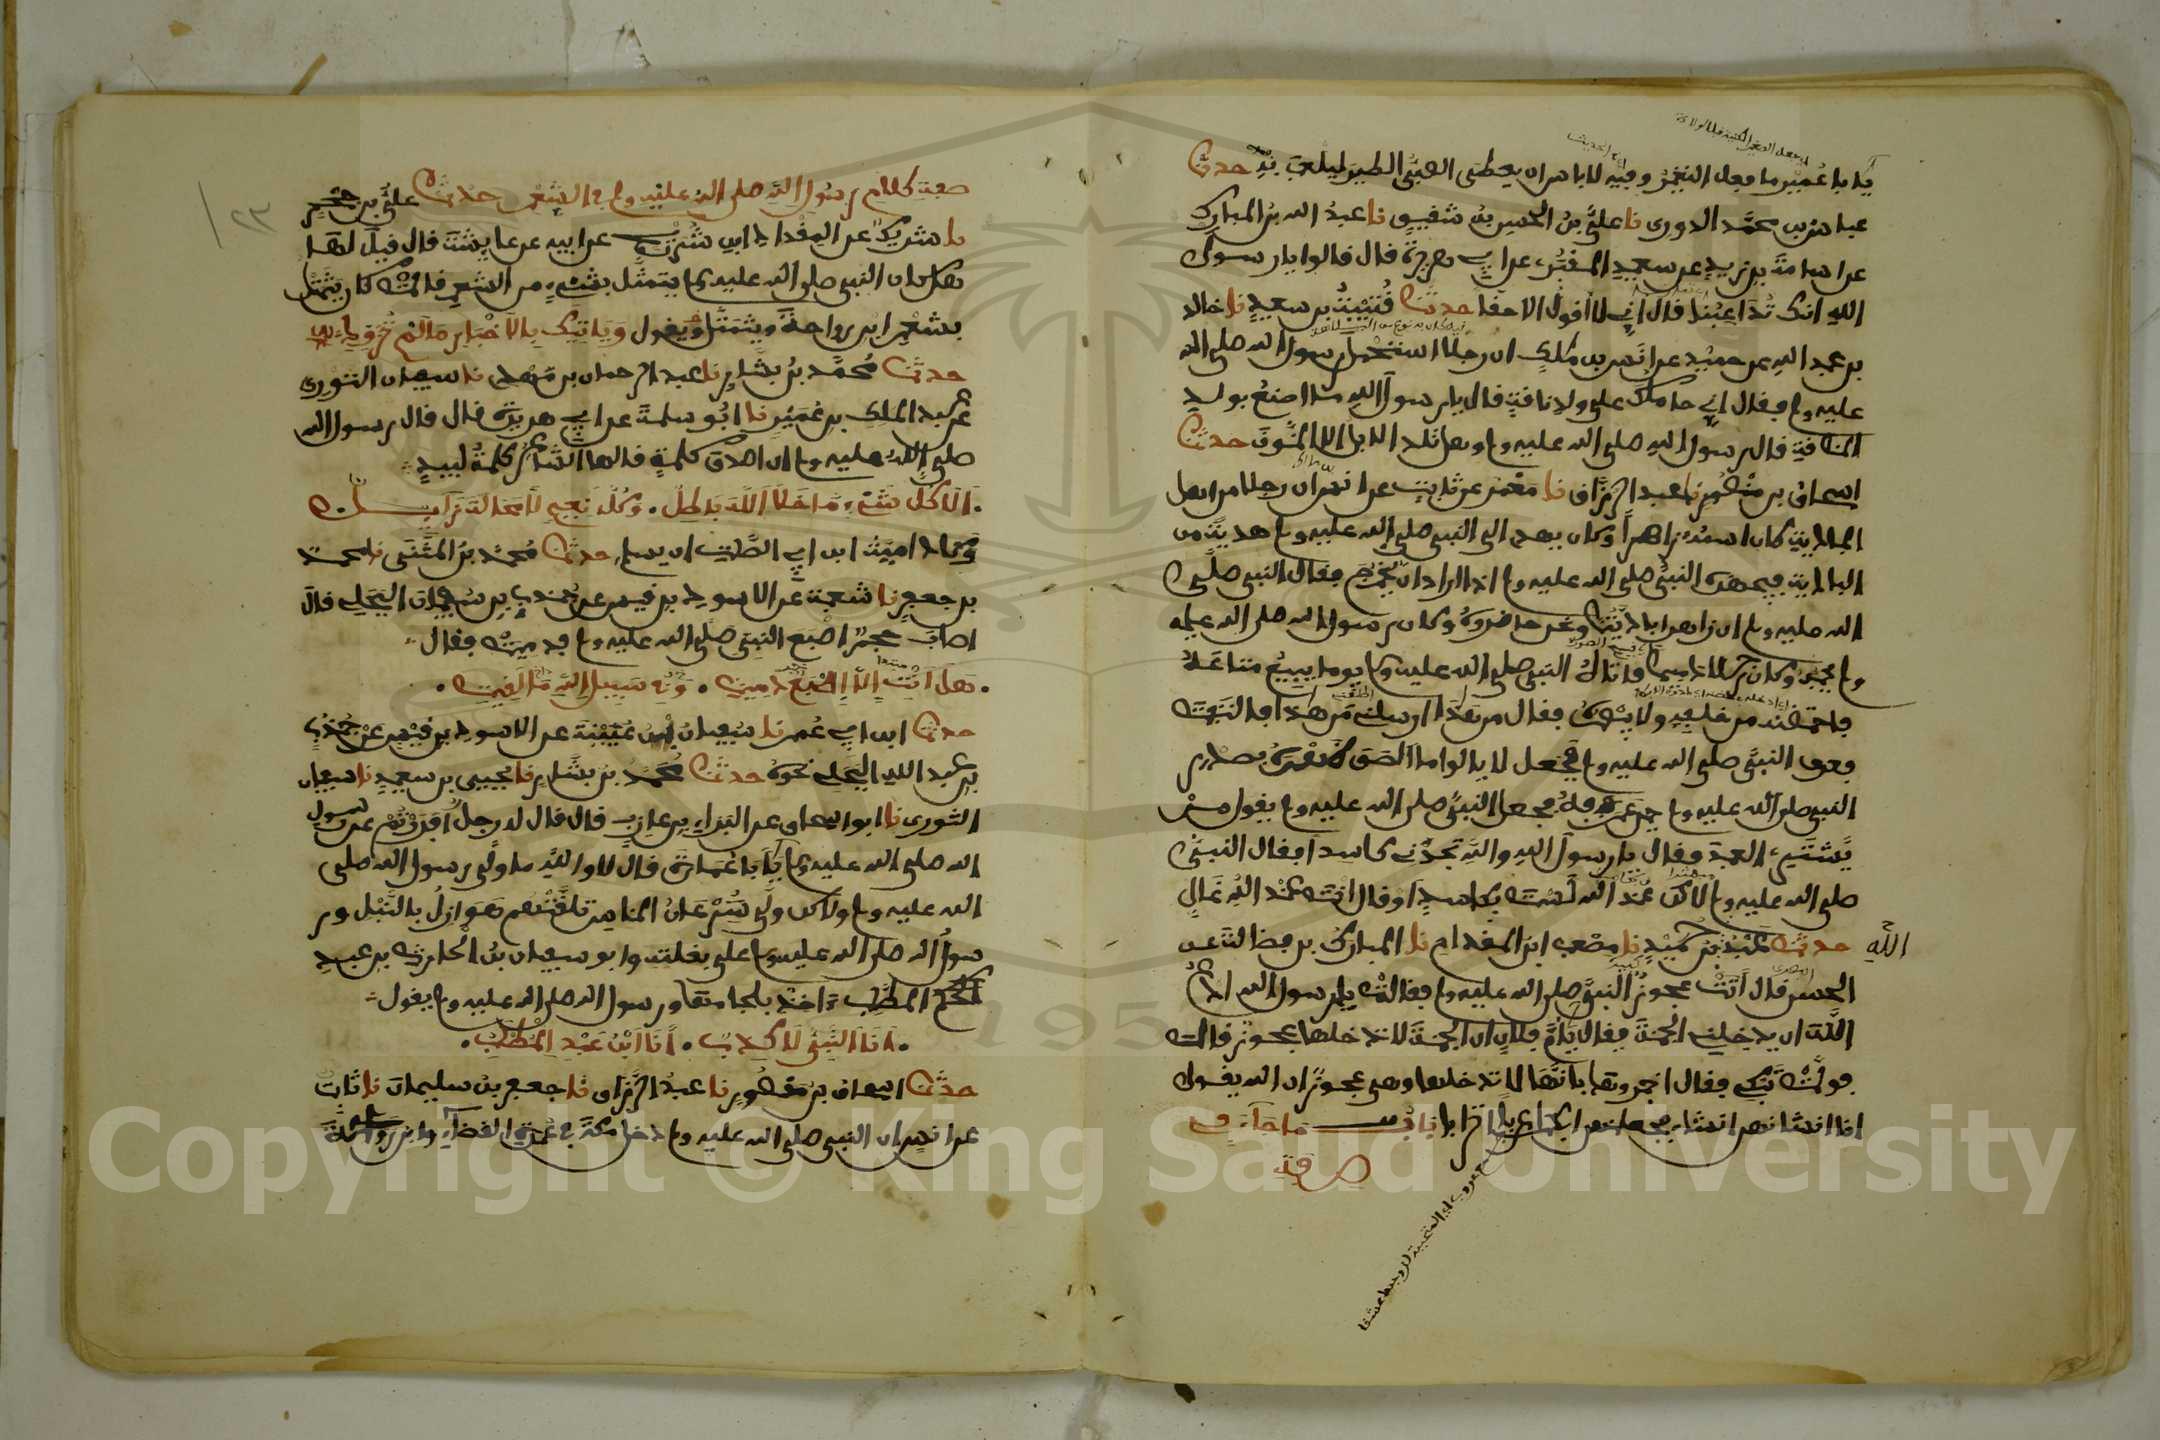 يا ابا عمير ما فعل النغير وفيه لا باس ان يعطى الصبي الطير ليلعب به حدثنا
عباس بن محمد الدوري نا علي بن الحسين بن شفيق نا عبد الله بن المبارك
عن اسامة بن زيد عن سعيد المقبري عن ابي هريرة قال قالوا يا رسول
الله انك تداعبنا قال اني لا اقول الا حقا حدثنا قتيبة بن سعيد نا خالد
بن عبد الله عن حميد عن انس بن ملك ان رجلا استحمل رسول الله صلى الله
عليه وسلم فقال اني حاملك على ولد ناقة فقال يا رسول الله ما اصنع بولد
الناقة فقال رسول الله صلى الله عليه وسلم وهل تلد الابل الا النوق حدثنا
اسحاق بن منصور نا عبد الرزاق نا معمر عن ثابت عن انس ان رجلا من اهل
البادية كان اسمه زاهرا وكان يهدي الى النبي صلى الله عليه وسلم هدية من
البادية فيجهزه النبي صلى الله عليه وسلم اذا اراد ان يخرج فقال النبي صلى
الله عليه وسلم ان زاهرا باديتنا ونحن حاضروه وكان رسول الله صلى الله عليه
وسلم يحبه وكان رجلا دميما فاتاه النبي صلى الله عليه وسلم يوما يبيع متاعه
فاحتضنه من خلفه ولا يبصره فقال من هذا ارسلني من هذا فالتفت
فعرف النبي صلى الله عليه وسلم فجعل لا يالوا ما الصق ظهره بصدر
النبي صلى الله عليه وسلم حين عرفه فجعل النبي صلى الله عليه وسلم يقول من
يشتري العبد فقال يا رسول الله والله تجدني كاسدا فقال النبي
صلى الله عليه وسلم لاكن عند الله لست بكاسد او قال انت عند الله غال
حدثنا عبد بن حميد نا مصعب ابن المقدام نا المبارك بن فضالة عن
الله
الحسن قال اتت عجوز النبي صلى الله عليه وسلم فقالت يا رسول الله ادع
الله ان يدخلني الجنة فقال يا ام فلان ان الجنة لا تدخلها عجوز قال
فولت تبكي فقال اخبروها بانها لا تدخلها وهي عجوز ان الله يقول
انا انشاناهن انشاء فجعلناهن ابكارا عربا اترابا باب ما جاء في
صفة
صفة كلام رسول الله صلى الله عليه وسلم في الشعر حدثنا علي بن حجر
نا شريك عن المقدام ابن شريح عن ابيه عن عايشة قال قيل لها
هل كان النبي صلى الله عليه وسلم يتمثل بشيء من الشعر قالت كان يتمثل
بشعر ابن رواحة ويتمثل ويقول وياتيك بالاخبار من لم تزود
حدثنا محمد بن بشار نا عبد الرحمان بن مهدي نا سفيان الثوري
عن عبد الملك بن عمير نا ابو سلمة عن ابي هريرة قال قال رسول الله
صلى الله عليه وسلم ان اصدق كلمة قالها الشاعر كلمة لبيد
الا كل شيء ما خلا الله باطل . وكل نعيم لا محالة زايل
وكاد امية ابن ابي الصلت ان يسلم حدثنا محمد بن المثنى نا محمد
بن جعفر نا شعبة عن الاسود بن قيس عن جندب بن سفيان البجلي قال
اصاب حجر اصبع النبي صلى الله عليه وسلم فدميت فقال
هل انت الا اصبع دميت . وفي سبيل الله ما لقيت .
حدثنا ابن ابي عمر نا سفيان بن عيينة عن الاسود بن قيس عن جندب
بن عبد الله البجلي نحوه حدثنا محمد بن بشار نا يحيى بن سعيد نا سفيان
الثوري نا ابو اسحاق عن البراء بن عازب قال قال له رجل افررتم عن رسول
الله صلى الله عليه وسلم يا ابا عمارة قال لا والله ما ولى رسول الله صلى
الله عليه وسلم ولاكن ولى سرعان الناس تلقتهم هوازن بالنبل ور
سول الله صلى الله عليه وسلم على بغلته وابو سفيان بن الحارث بن عبد
المطلب ءاخذ بلجامها ورسول الله صلى الله عليه وسلم يقول
. انا النبي لا كذب . انا ابن عبد المطلب .
حدثنا اسحاق بن منصور نا عبد الرزاق نا جعفر بن سليمان نا ثابت
عن انس ان النبي صلى الله عليه وسلم دخل مكة في عمرة القضاء وابن رواحة
Copyright © King Saud University